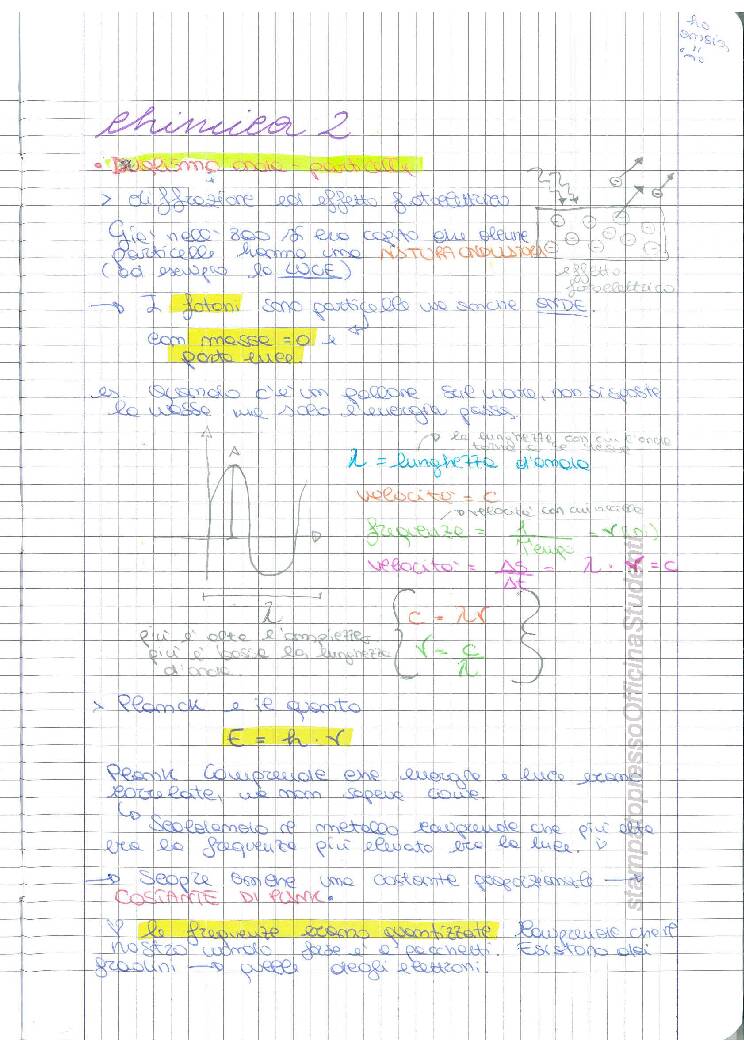 ho
ansia
chimica 2
• Dualismo onda - particella
> diffrazione ed effetto fotoelettrico
Già nell' 800 si era capito che alcune
particelle hanno una NATURA ONDULATORIA
(ad esempio la LUCE)
effetto
fotoelettrico
→ I fotoni sono particelle ma anche ONDE.
con massa = 0 e
porta luce.
es Quando c'è un pallone sul mare, non si sposta
la massa ma solo l'energia passa.
la lunghezza con cui l'onda
A
λ = lunghezza d'onda
velocità = c
velocità con cui
frequenza = 1/Tempo = ν
velocità = Δs/Δt = λ · ν = c
λ
c = λν
ν = c/λ
più è alta l'ampiezza
più è bassa la lunghezza
d'onda.
> Planck e il quanto
E = h · ν
Plank comprende che energia e luce erano
correlate, ma non sapeva come.
↳ Scaldando il metallo comprende che più alta
era la frequenza più elevata era la luce.
→ Scopre anche una costante proporzionale →
COSTANTE DI PLANK.
le frequenze erano quantizzate comprende che il
nostro mondo è a pacchetti. Esistono dei
gradini → quelli degli elettroni.
stampatopressoOfficinaStudenti